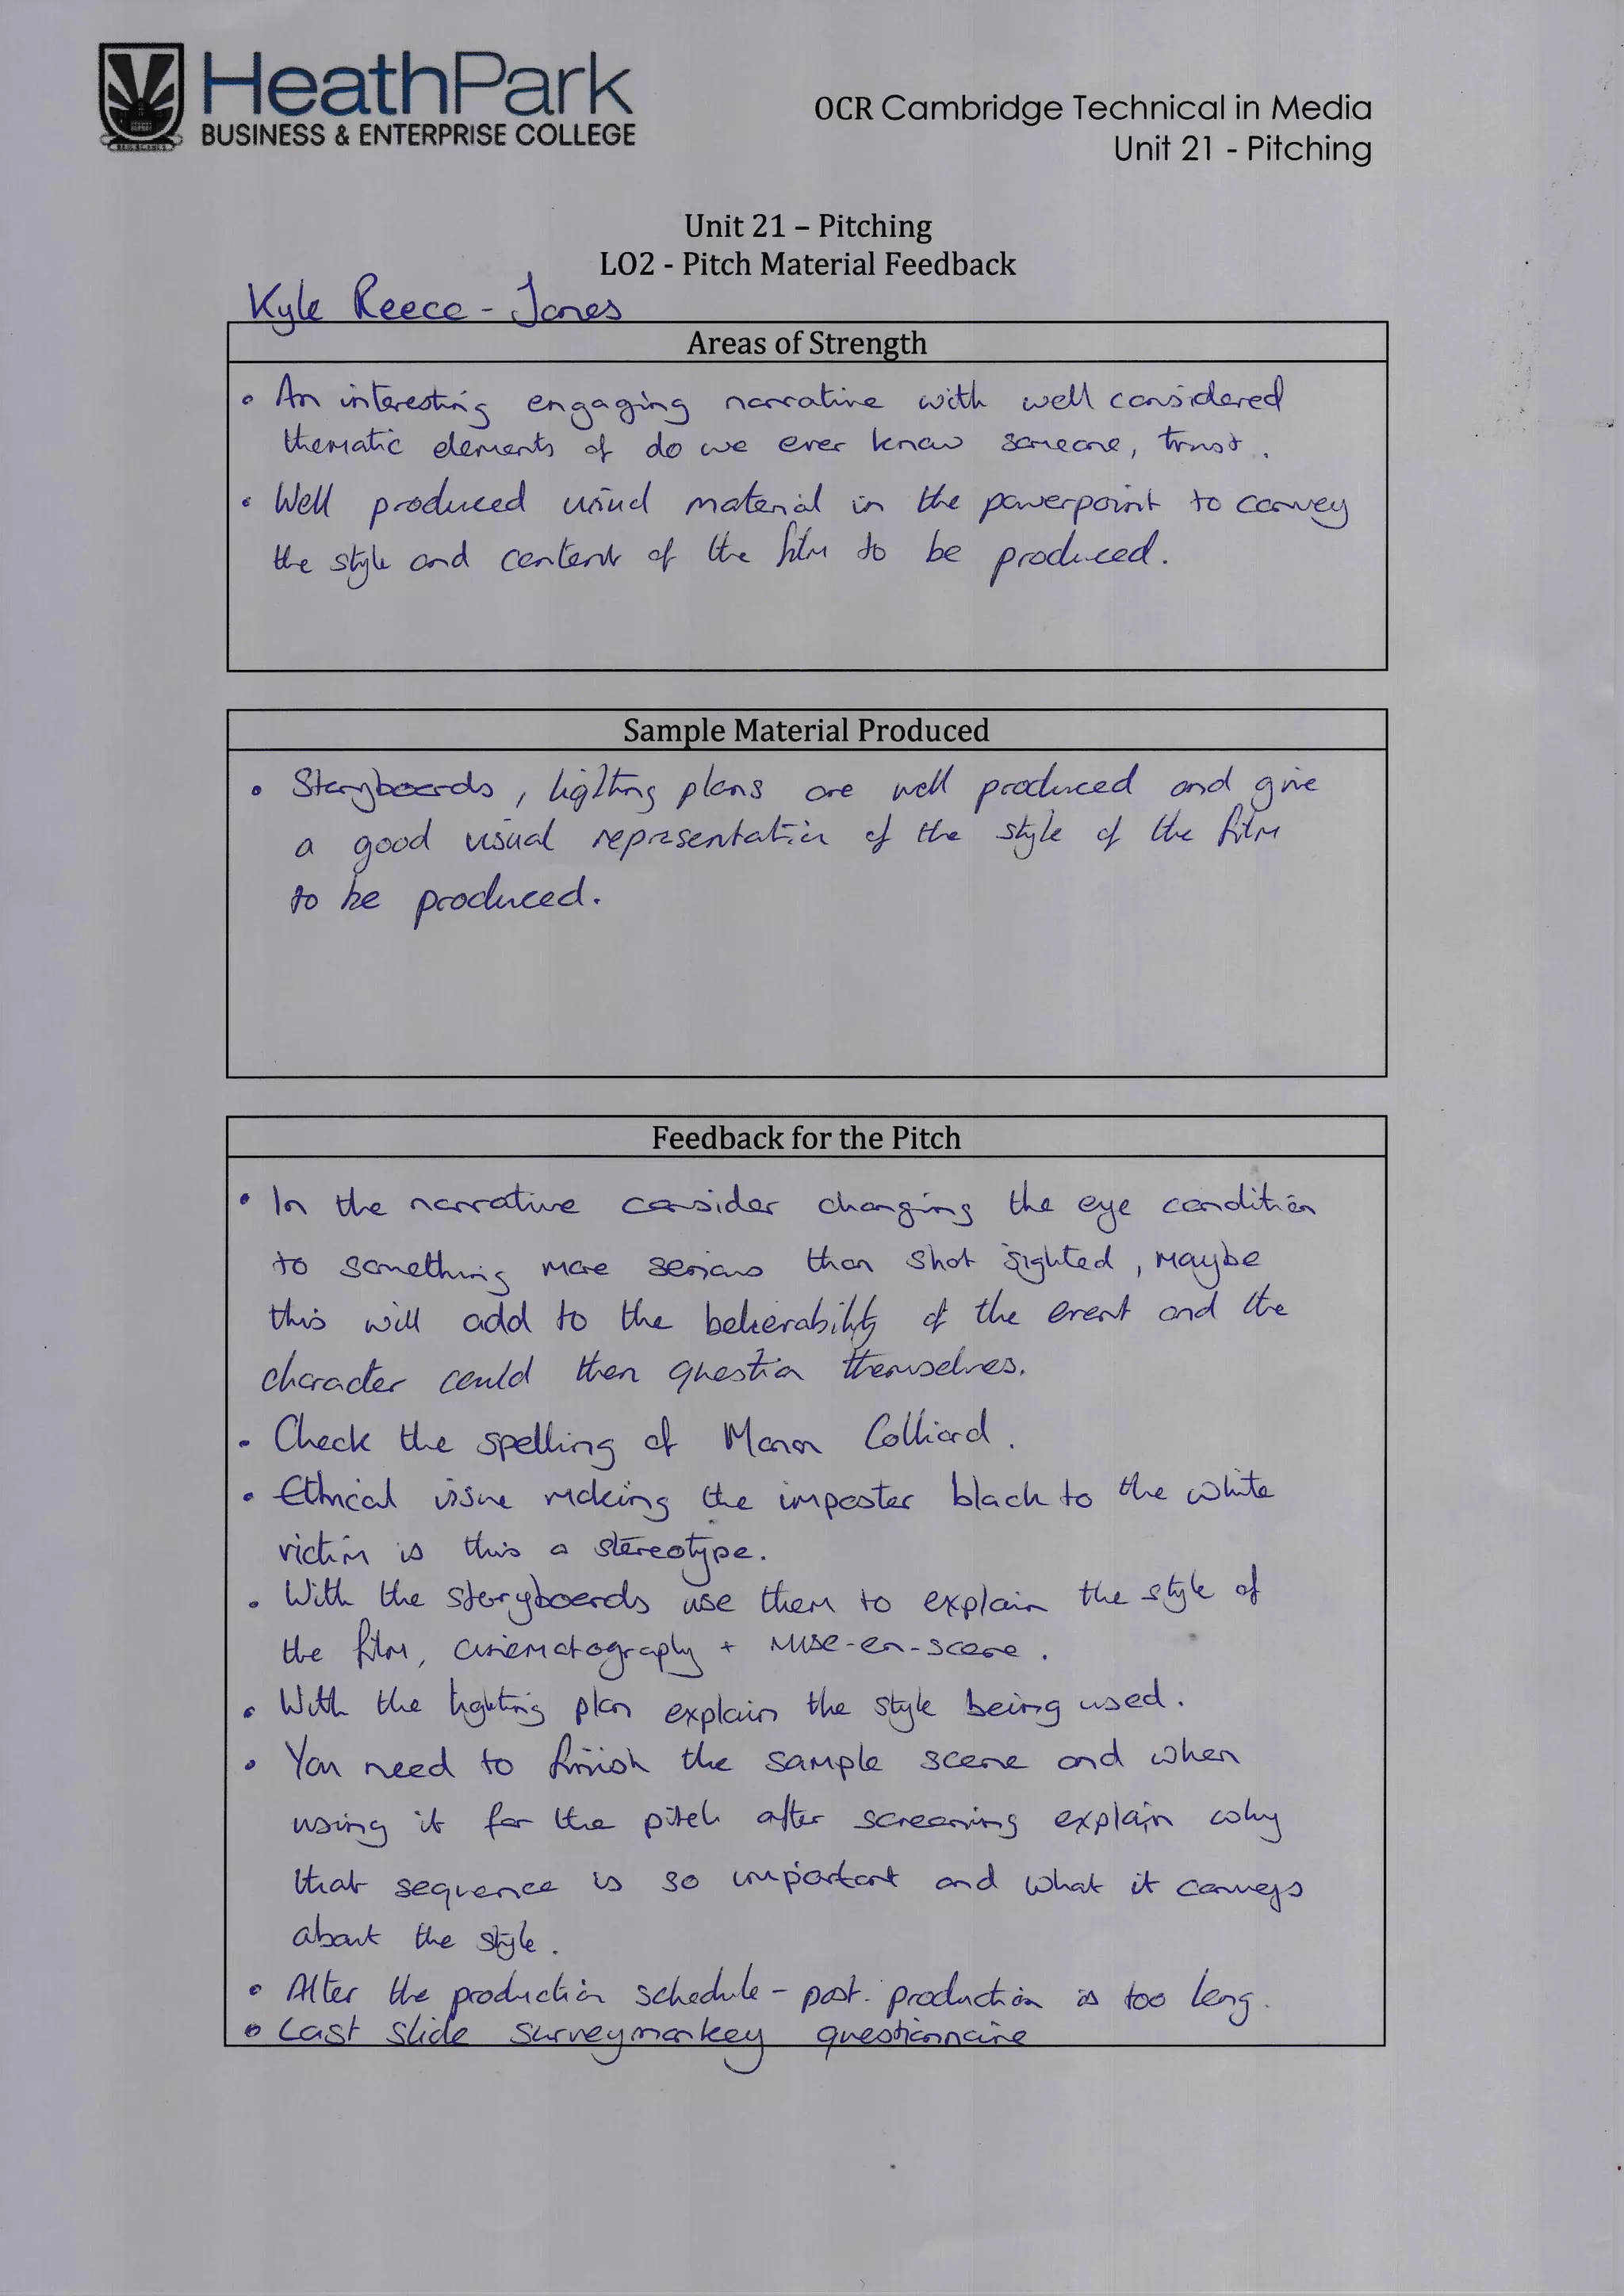 HeathPark
BUSINESS & ENTERPRISE COLLEGE
OCR Cambridge Technical in Media
Unit 21 - Pitching
Unit 21 – Pitching
LO2 - Pitch Material Feedback
Kyle Reece - Jones
Areas of Strength
• An interesting engaging narrative with well considered
thematic elements of do we ever know someone, trust.
• Well produced visual material in the powerpoint to convey
the style and content of the film to be produced.
Sample Material Produced
• Storyboards, lighting plans are well produced and give
a good visual representation of the style of the film
to be produced.
Feedback for the Pitch
• In the narrative consider changing the eye condition
to something more serious than shot sighted, maybe
this will add to the believability of the event and the
character could then question themselves.
• Check the spelling of Manon Colliard.
• Ethical issue making the imposter black to the white
victim is this a stereotype.
• With the storyboards use them to explain the style of
the film, cinematography + mise-en-scene.
• With the lighting plan explain the style being used.
• You need to finish the sample scene and when
using it for the pitch after screening explain why
that sequence is so important and what it conveys
about the style.
• Alter the production schedule - post. production is too long.
• Last slide surveymonkey questionnaire